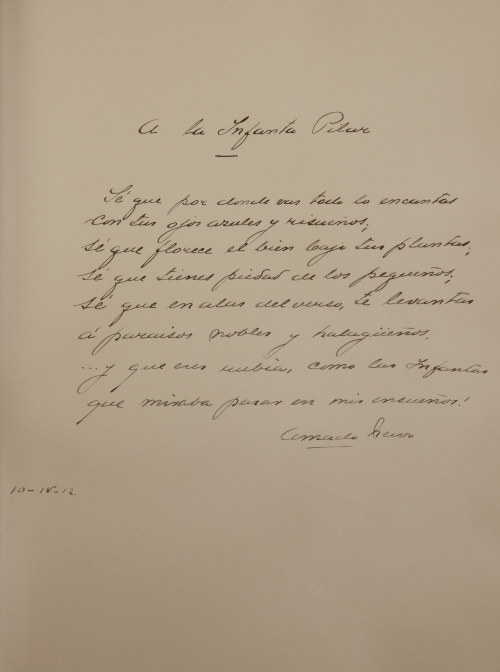 A la Infanta Pilar
Sé que por donde vas todo lo encantas
con tus ojos azules y risueños;
sé que florece el bien bajo tus plantas;
sé que tienes piedad de los pequeños;
sé que en alas del verso, te levantas
á paraísos nobles y halagüeños,
...y que eres rubia, como las Infantas
que miraba pasar en mis ensueños!
Amado Nervo
10-IV-12